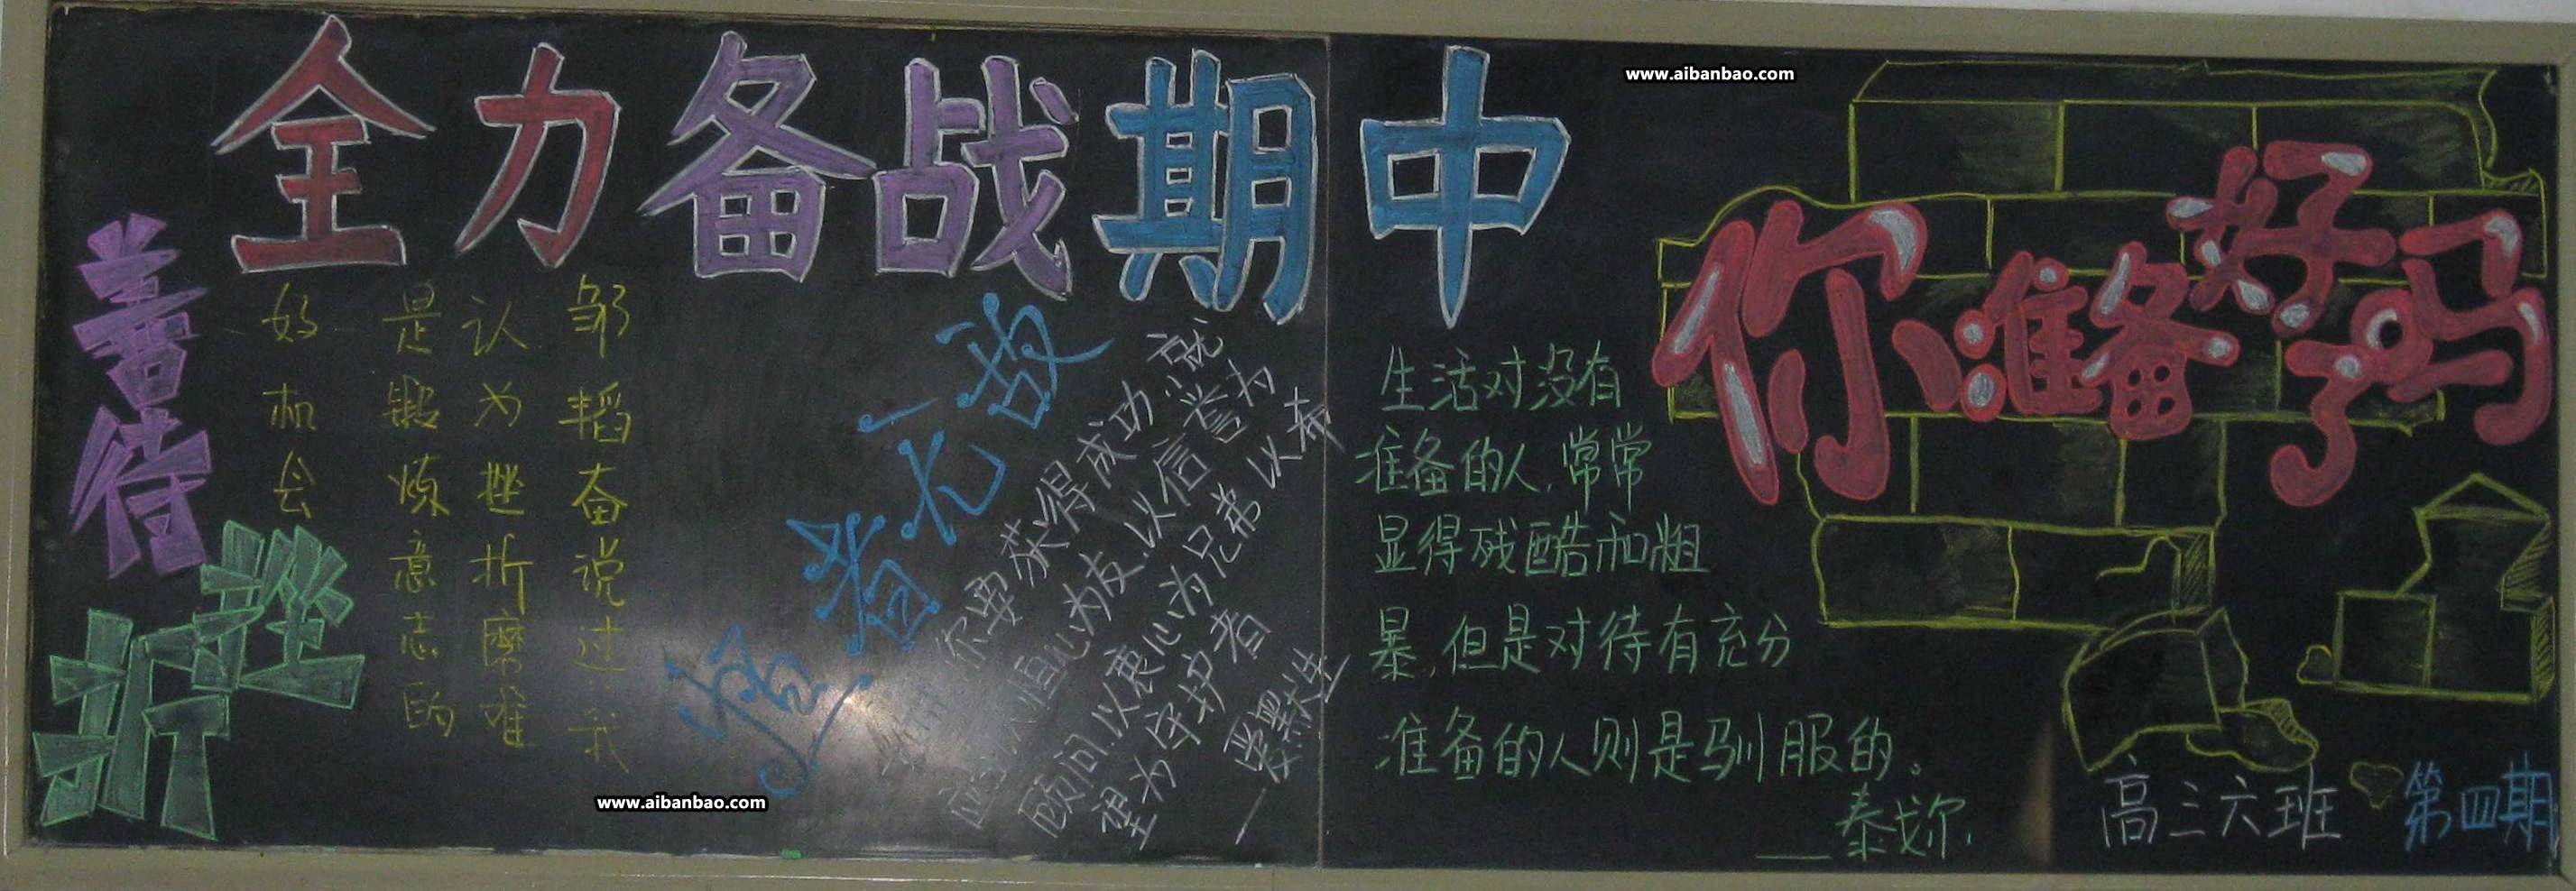 全力备战期中
www.aibanbao.com
你准备好了吗
善待
挫折
邹韬奋说过:我
认为挫折磨难
是锻炼意志的
好机会
者无敌
你要获得成功就
应以恒心为友,以信誉为
顾问,以衷心为兄弟,以希
望为守护者
生活对没有
准备的人,常常
显得残酷和粗
暴,但是对待有充分
准备的人则是驯服的。
——泰戈尔
www.aibanbao.com
高三六班
第四期